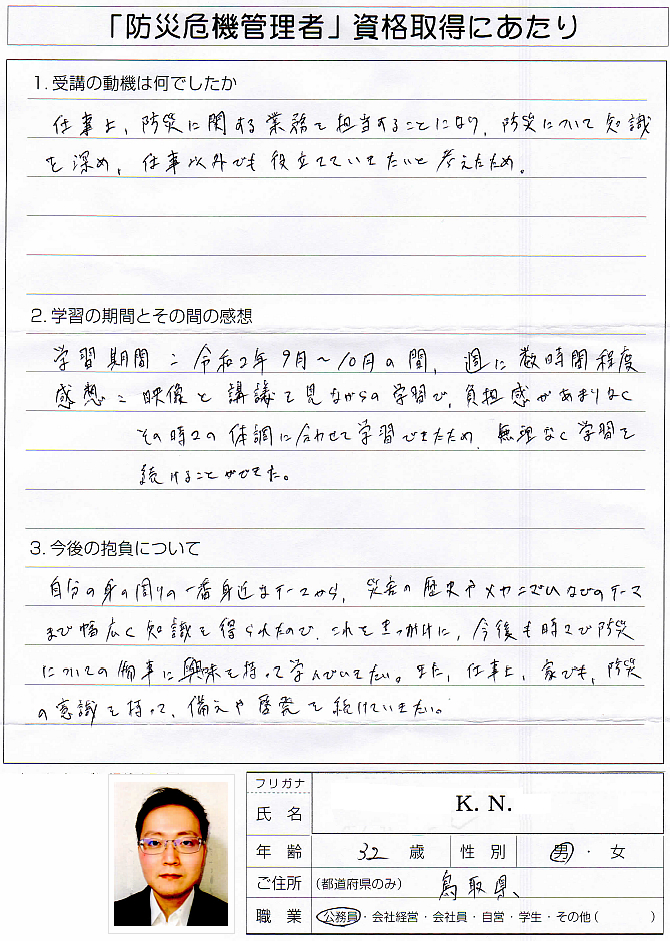 「防災危機管理者」資格取得にあたり
1. 受講の動機は何でしたか
仕事上、防災に関する業務を担当することになり、防災について知識
を深め、仕事以外でも役立てていきたいと考えたため。
2. 学習の期間とその間の感想
学習期間：令和2年9月～10月の間、週に数時間程度
感想：映像と講議を見ながらの学習で、負担感があまりなく
その時々の体調に合わせて学習できたため、無理なく学習を
続けることができた。
3. 今後の抱負について
自分の身の周りの一番身近なテーマから、災害の歴史やメカニズムなどのテーマ
まで幅広く知識を得られたので、これをきっかけに、今後も時々で防災
についての物事に興味を持って学んでいきたい。また、仕事上、家でも、防災
の意識を持って、備えや啓発を続けていきたい。
フリガナ
氏名 K. N.
年齢 32 歳 性別 男・女
ご住所 (都道府県のみ) 鳥取県
職業 公務員・会社経営・会社員・自営・学生・その他( )